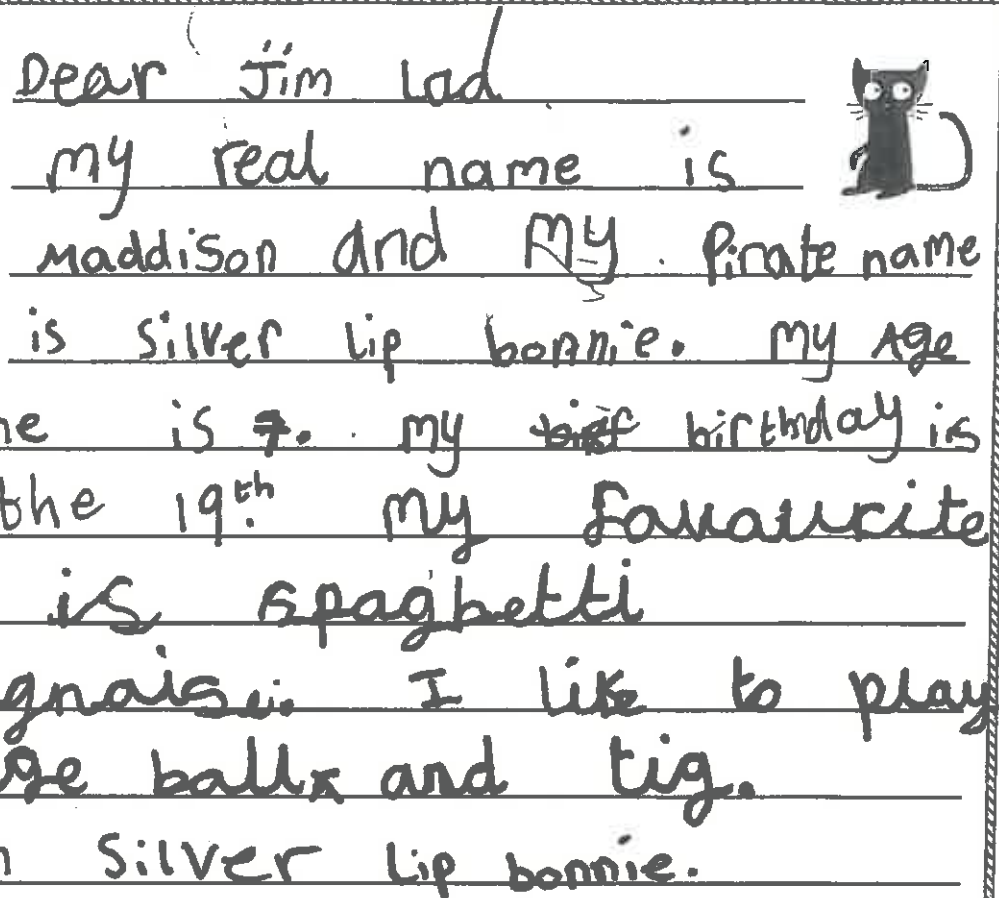 Dear Jim lad
my real name is
Maddison and my Pirate name
is silver lip bonnie. My Age
ne is 7. my birthday is
the 19th. my favaurite
is spaghetti
gnaise. I like to play
ge ball and tig.
n silver lip bonnie.